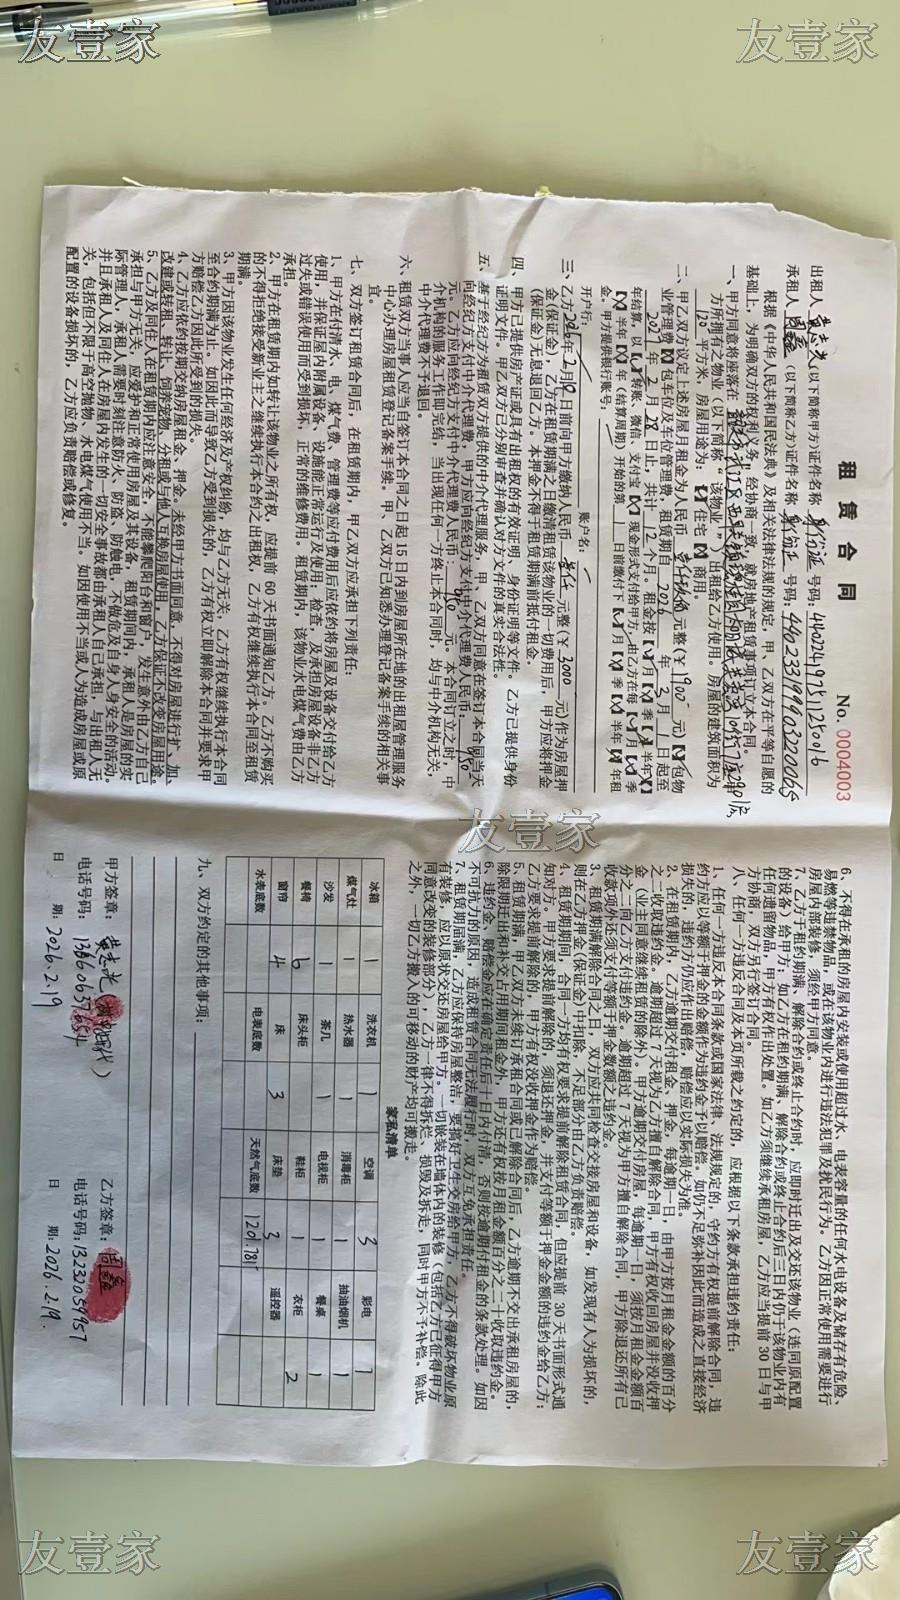 友壹家
友壹家
租 赁 合 同
No. 0004003
出租人(以下简称甲方证件名称 身份证 号码:
承租人 周鑫 (以下简称乙方证件名称 身份证 号码:
根据《中华人民共和国民法典》及相关法律法规的规定,甲、乙双方在平等自愿的
基础上,为明确双方的权利义务,经协商一致,就房地产租赁事项订立本合同。
一、甲方同意将座落在
方所拥有之物业(以下简称“该物业”)出租给乙方使用。房屋的建筑面积为
120 平方米,房屋用途为:【√】住宅【 】商用。
二、甲乙双方议定上述房屋月租金为人民币 元整(¥ 1900 元)【√】包物
业管理费【 】包车位及车位管理费,租赁期自 2026 年 3 月 1 日起至
2027 年 2 月 28 日止,共计 12 个月。租金按【√】月【 】季【 】半年【 】
年结算,以【 】转账、微信、支付宝【 】现金形式支付给甲方,由乙方在每【√】月【 】季
【 】半年【 】年(结算周期)开始的第 1 日前缴付下【√】月【 】季【 】半年【 】年租
金。甲方提供银行账号:
开户行: 账户名:
三、乙方 日前向甲方缴纳人民币 叁仟 元整(¥ 3000 元)作为房屋押
金(保证金),乙方在租赁期满之日缴清租赁该物业的一切费用后,甲方应将押金
(保证金)无息退回乙方。本押金不得于租赁期满前抵付租金。
四、甲方已提供房产证或具有出租权的有效证明、身份证明等文件。乙方已提供身份
证明文件。甲乙双方已分别审查并确认对方文件的真实合法性。
五、基于经纪方为租赁双方提供的中介代理服务,甲、乙双方同意在签订本合同当天
向经纪方支付中介代理费,甲方应向经纪方支付中介代理费人民币:
元。乙方应向经纪方支付中介代理费人民币: 元。本合同订立之时,中
介机构的服务工作即完结,当出现任何一方终止本合同时,均与中介机构无关,
中介代理费不予退回。
六、租赁双方当事人应当自签订本合同之日起 15 日内到房屋所在地的出租屋管理服务
中心办理房屋租赁登记备案手续。甲、乙双方已知悉办理登记备案手续的相关事
宜。
七、双方签订租赁合同后,在租赁期内,甲乙双方应承担下列责任:
1、甲方在付清水、电、煤气费、管理费等应付费用后应依约将房屋及设备交付给乙方
使用,并保证屋内附属设备、设施能正常运行及使用;检查,及承担房屋设备非乙方
过失或错误使用而受到损坏,正常的维修费用。租赁期内,该物业水电煤气费由乙方
承担。
2、甲方在租赁期内如转让该物业之所有权,应提前 60 天书面通知乙方。乙方不购买
的不得拒绝接受新业主之继续执行本合约之出租权,乙方有权继续执行本合同至租赁
期满。
3、甲方因该物业发生任何经济及产权纠纷,均与乙方无关,乙方有权继续执行本合同
至合约期满为止。如因此而导致乙方受到损失的,乙方有权立即解除本合同并要求甲
方赔偿乙方因此所受到的损失。
4、乙方应依约按期交纳房屋租金、押金。未经甲方书面同意,不得对房屋进行扩、加、
改建或转租、转让、饲养宠物、分租或与他人互换房屋使用,乙方保证不改变房屋用途。
5、乙方及同住人在租赁期内应注意安全,不能攀爬阳台和窗户,发生意外由乙方自己
承担与甲方无关,应爱护和正常使用房屋及其设备,租赁期间内,承租人是房屋的实
际管理人,承租人需要时刻注意防火、防盗、防触电,不做危及自身人身安全的活动。
并且承租人及同住人在房屋内发生的一切安全事故都由承租人自己承担,与出租人无
关,包括但不限于高空抛物、水电煤气使用不当。如因使用不当或人为造成房屋或原
配置的设备损坏的,乙方应负责赔偿或修复。
友壹家
6、不得在承租的房屋内安装或使用超过水、电表容量的任何水电设备及储存有危险、
易燃等违禁物品,或在该物业内进行违法犯罪及扰民行为。乙方因正常使用需要进行
房屋内部装修,须经甲方同意。
7、乙方于租约期满、解除合约或终止合约时,应即时迁出及交还该物业(连同原配置
的设备)给甲方;如乙方在租约期满、解除合约或终止合约后三日内仍于该物业内有
任何遗留物品,甲方有权作出处置。如乙方须继续承租房屋,乙方应当提前 30 日与甲
方协商,双方另行签订合同。
八、任何一方违反合同及本页所载之约定的,应根据以下条款承担违约责任:
1、任何一方违反本合同条款或国家法律、法规规定的,守约方有权提前解除合同,违
约方应以等额于押金的金额作为违约金予以赔偿。如仍不足弥补因此而造成之直接经济
损失的,违约方仍应作出赔偿,赔偿应以实际损失为准。
2、在租赁期内,乙方逾期交付租金、押金,每逾期一日,由甲方按月租金金额的百分
之二收取违约金。逾期超过 7 天视为乙方擅自解除合同,甲方有权收回房屋并没收押
金(业主同意继续租赁的除外)。甲方逾期交付房屋,每逾期一日,须按月租金金额百
分之二向乙方支付违约金。逾期超过 7 天视为甲方擅自解除合同,甲方除退还所有已
收款项外还须支付等额于押金数额之违约金。
3、租赁期满解除合同之日,双方应共同检查交接房屋和设备,如发现有人为损坏的,
则在乙方押金(保证金)中扣除,不足部分由乙方负责赔偿。
4、租赁期期间,合同一方均有权要求提前解除租赁合同,但应提前 30 天书面形式通
知对方。甲方要求提前解除的,须退还押金,并支付等额于押金金额的违约金给乙方;
乙方要求提前解除的,甲方有权没收押金作为赔偿。
5、租赁期满,甲乙双方未续订承租合同或已解除合同后,乙方逾期不交出承租房屋的,
除限期迁出和补交占用期间租金外,甲方还有权按月租金额百分之二十收取违约金。
6、违约金、赔偿金应在确定责任后十日内付清,否则按逾期付租金的条款处理。如因
不可抗力的原因,造成租赁合同无法履行时,双方互免承担责任。
7、租赁期届满,乙方应保持房屋整洁,要搞好卫生交房给甲方,乙方不得破坏物业原
有装修,应以原状交还房屋给甲方。一切嵌装在墙体内的装修(包括乙方已征得甲方
同意改变的装修部分),乙方一律不得拆烂、损毁及拆走,同时甲方不予补偿。除此
之外,一切乙方搬入的可移动的财产均可搬走。
家私清单
冰箱 1 洗衣机 1 空调 3 彩电 1
煤气灶 1 热水器 1 消毒柜 1 抽油烟机 1
沙发 1 茶几 1 电视柜 1 餐桌 1
餐椅 6 床头柜 鞋柜 1 衣柜 2
窗帘 4 床 3 床垫 3 遥控器
水表底数 电表底数 天然气底数
九、双方约定的其他事项:
甲方签章: 乙方签章: 周鑫
电话号码: 电话号码: 13232059957
日 期: 2026.2.19 日 期: 2026.2.19.
友壹家
友壹家